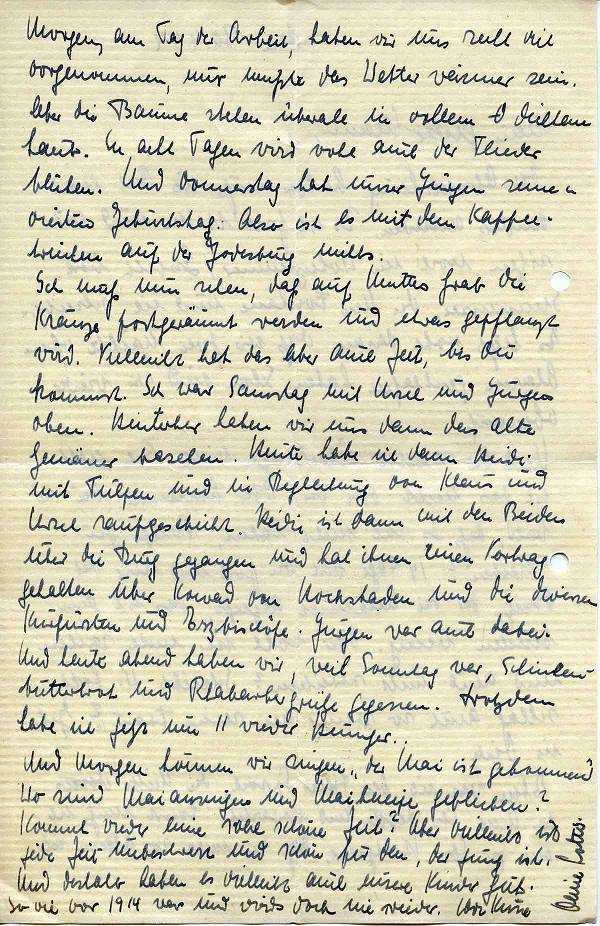 Morgen, am Tag der Arbeit, haben wir uns recht viel
vorgenommen, nur müßte das Wetter wärmer sein.
Aber die Bäume stehen überall in vollem
Laub. In acht Tagen wird wohl auch der Flieder
blühen. Und Donnerstag hat unser Jürgen seinen
Geburtstag. Also ist es mit dem Kaffee-
trinken auf der Godesburg nichts.
Ich muß nun sehen, daß auf Mutters Grab die
Kränze fortgeräumt werden und etwas gepflanzt
wird. Vielleicht hat das aber auch Zeit, bis Du
kommst. Ich war Samstag mit Ursel und Jürgen
oben. Hinterher haben wir uns dann das alte
Gemäuer besehen. Heute habe ich dann Heidi
mit Tulpen und in Begleitung von Klaus und
Ursel raufgeschickt. Heidi ist dann mit den Beiden
über die Burg gegangen und hat ihnen einen Vortrag
gehalten über Konrad von Hochstaden und die diversen
Kurfürsten und Erzbischöfe. Jürgen war auch dabei.
Und heute abend haben wir, weil Sonntag war, Schinken-
butterbrot und Rhabarbergrütze gegessen. Trotzdem
habe ich jetzt um 11 wieder Hunger.
Und morgen können wir singen „der Mai ist gekommen"
Wo sind und geblieben?
Kommt wieder eine so schöne Zeit? Aber vielleicht ist
jede Zeit und schön für den, der jung ist.
Und deshalb haben es vielleicht auch unsere Kinder gut.
So wie vor 1914 war und wirds doch nie wieder.